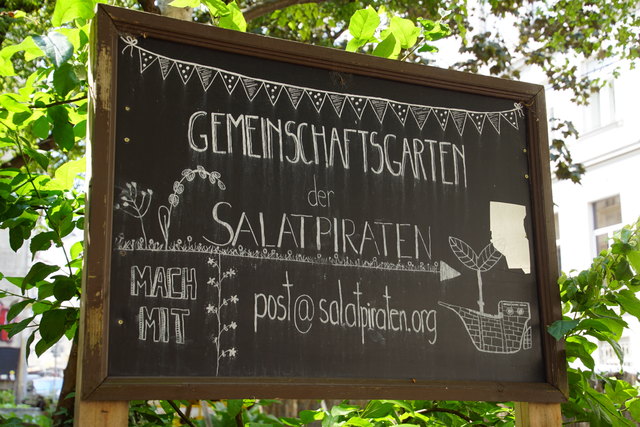 GEMEINSCHAFTSGARTEN
der
SALATPIRATEN
MACH
MIT
post@salatpiraten.org